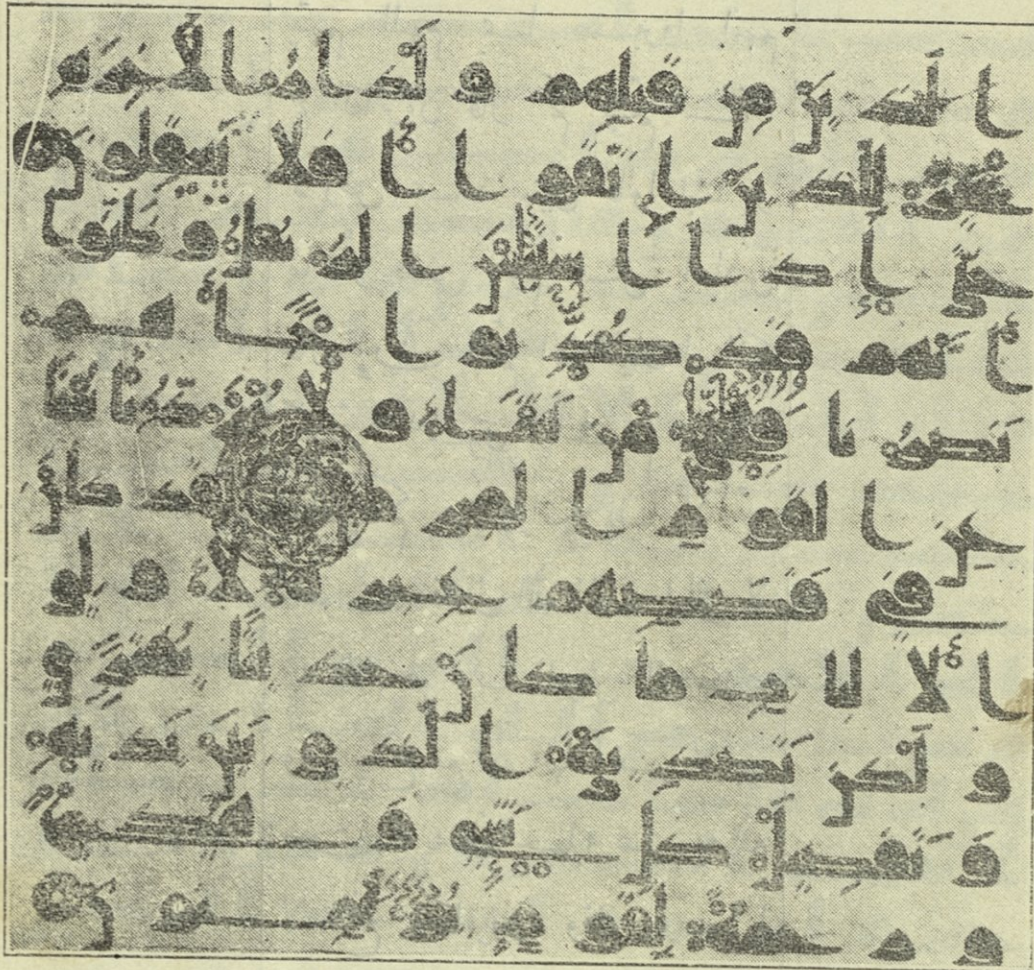 الذين من قبلهم ولدار الاخر
ة خير للذين اتقوا افلا تعقلون
حتى اذا استيئس الرسل وظنوا
انهم قد كذبوا جاءهم
نصرنا فنجي من نشاء ولا يرد باسنا
عن القوم المجرمين لقد كان
في قصصهم عبرة لاولي
الالباب ما كان حديثا يفترى
ولكن تصديق الذي بين يديه
وتفصيل كل شيء وهدى
ورحمة لقوم يؤمنون